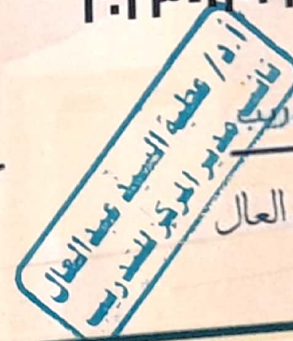 أ.د/ عطية السيد عبد العال
نائب مدير المركز للتدريب
العال